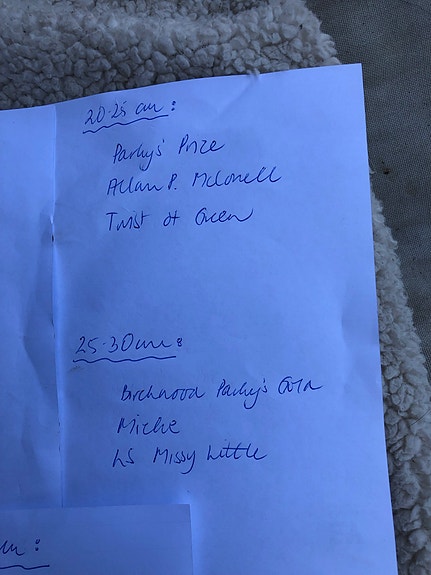 20-25 cm:
Parky's Prize
Allan P. McConell
Twist of Green
25-30cm:
Birchwood Parky's Gold
Miche
LS Missy Little
m: